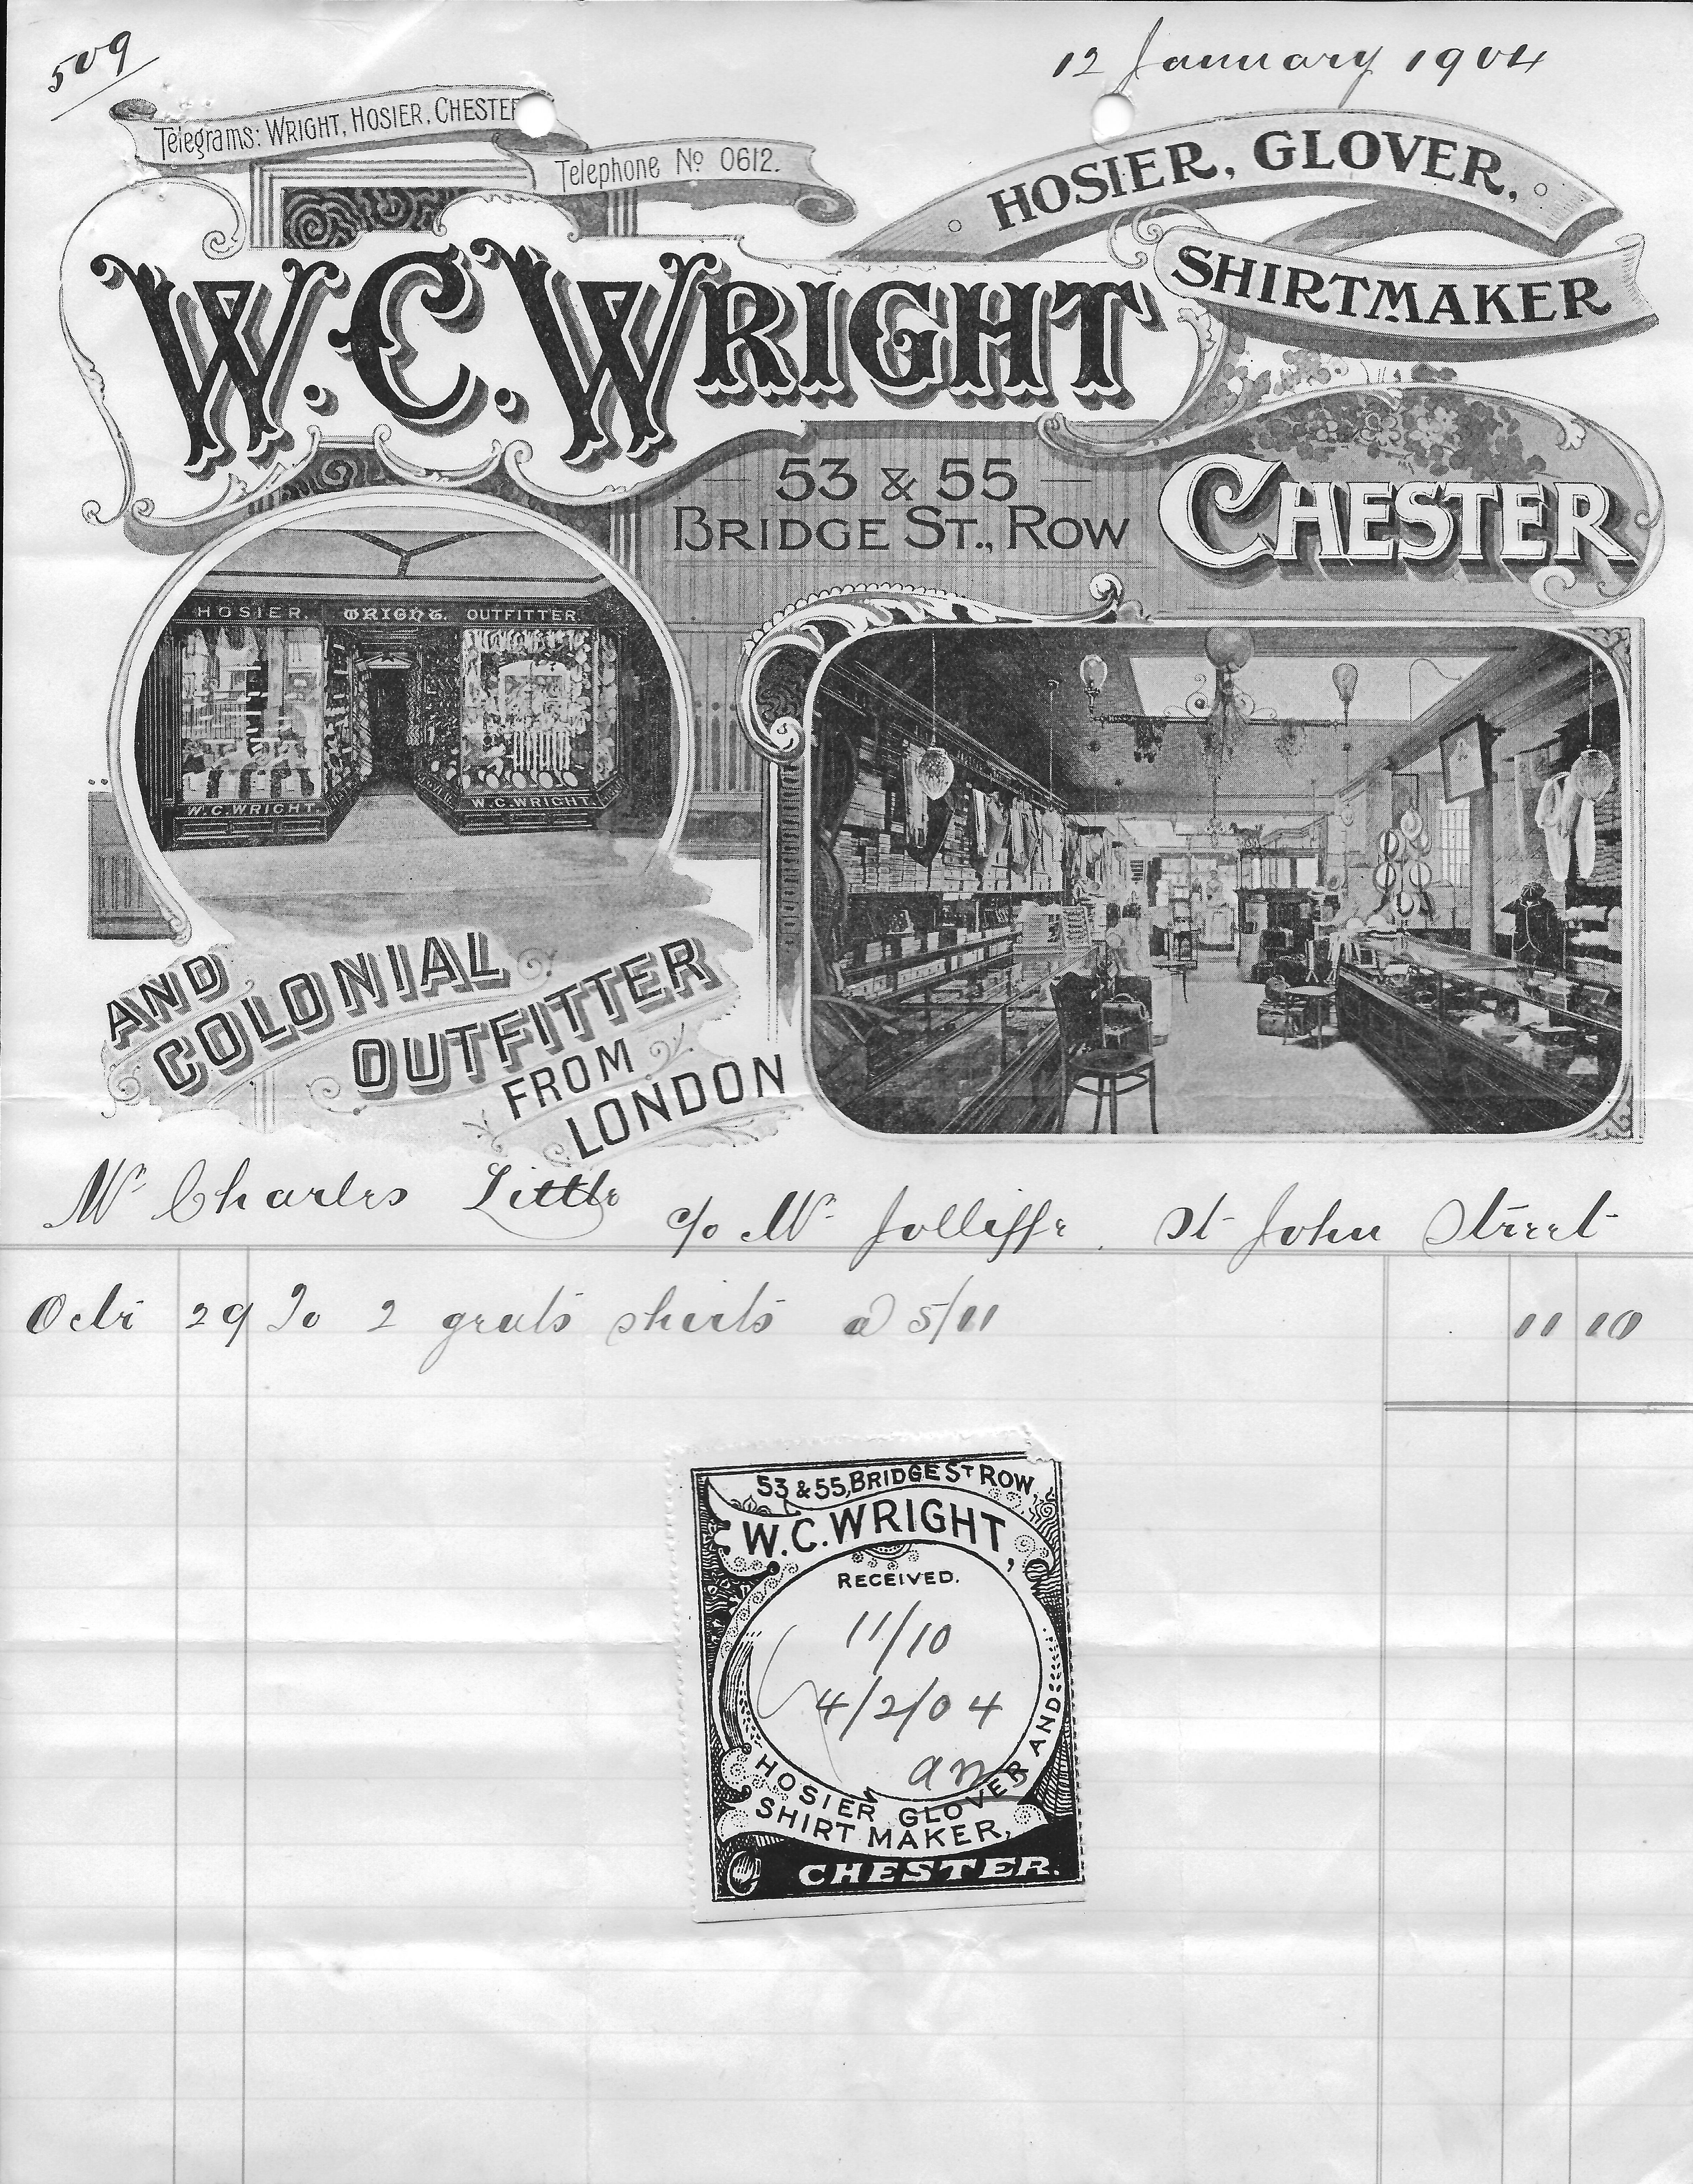 509
12 January 1904
Telegrams: WRIGHT, HOSIER, CHESTER
Telephone No 0612.
HOSIER, GLOVER,
SHIRTMAKER
W. C. WRIGHT
53 & 55
BRIDGE ST., ROW
CHESTER
HOSIER. WRIGHT. OUTFITTER.
W.C.WRIGHT. W.C.WRIGHT.
AND
COLONIAL
OUTFITTER
FROM
LONDON
Mr Charles Little c/o Mr Jolliffe, St John Street
Octr 29 To 2 gents shirts @ 5/11 11 10
53 & 55, BRIDGE ST ROW,
W.C.WRIGHT,
RECEIVED.
11/10
4/2/04
HOSIER GLOVER AND
SHIRT MAKER,
CHESTER.